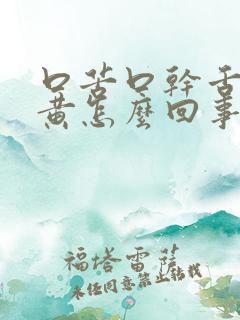 口苦口幹舌
黃怎麼回事
福塔雷薩
未经同意禁止转载